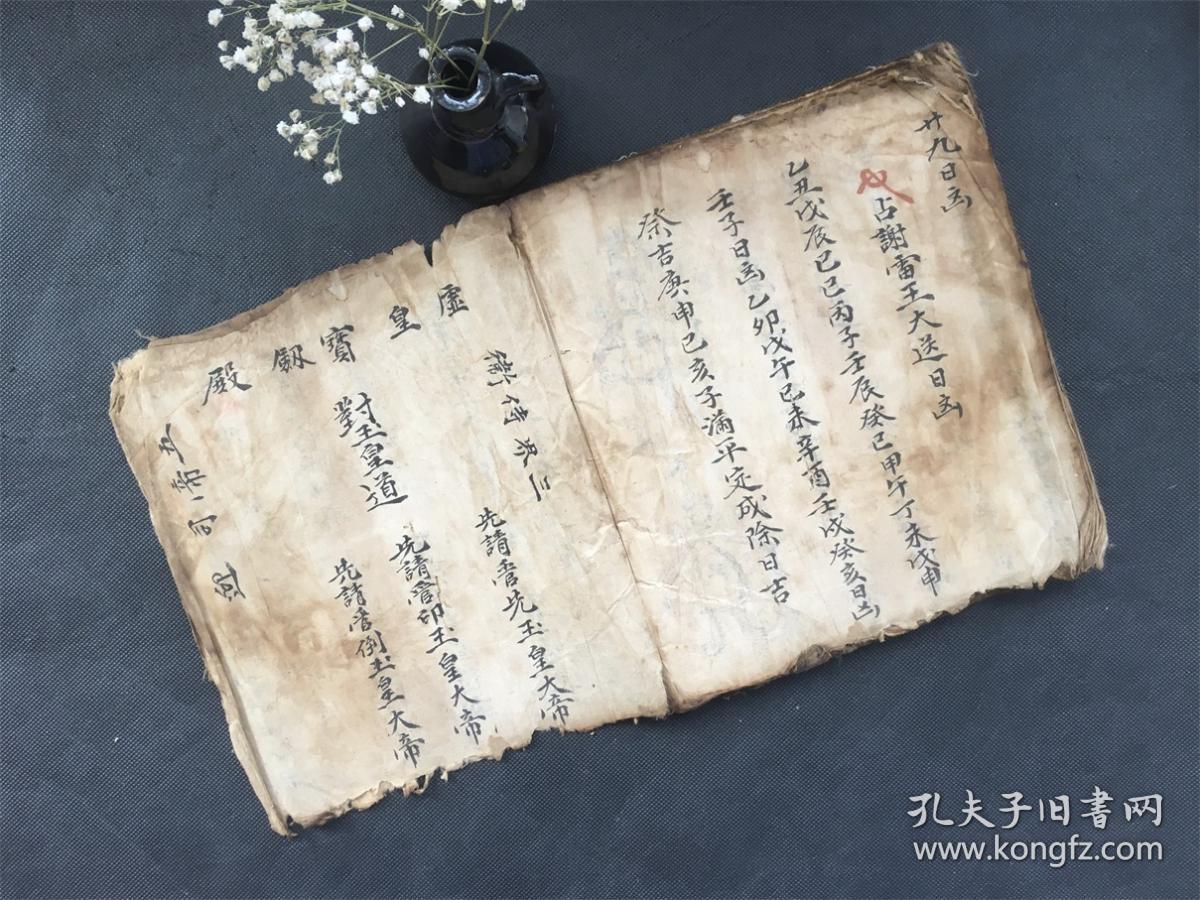 廿九日凶
占謝雷王大送日凶
乙丑戊辰己巳丙子壬辰癸巳甲午丁未戊申
壬子日凶乙卯戊午己未辛酉壬戌癸亥日凶
癸吉庚申己亥子滿平定成除日吉
虛皇寶劔殿
對玉皇道
先請 先玉皇大帝
先請 印玉皇大帝
先請 倒玉皇大帝
孔夫子旧书网
www.kongfz.com